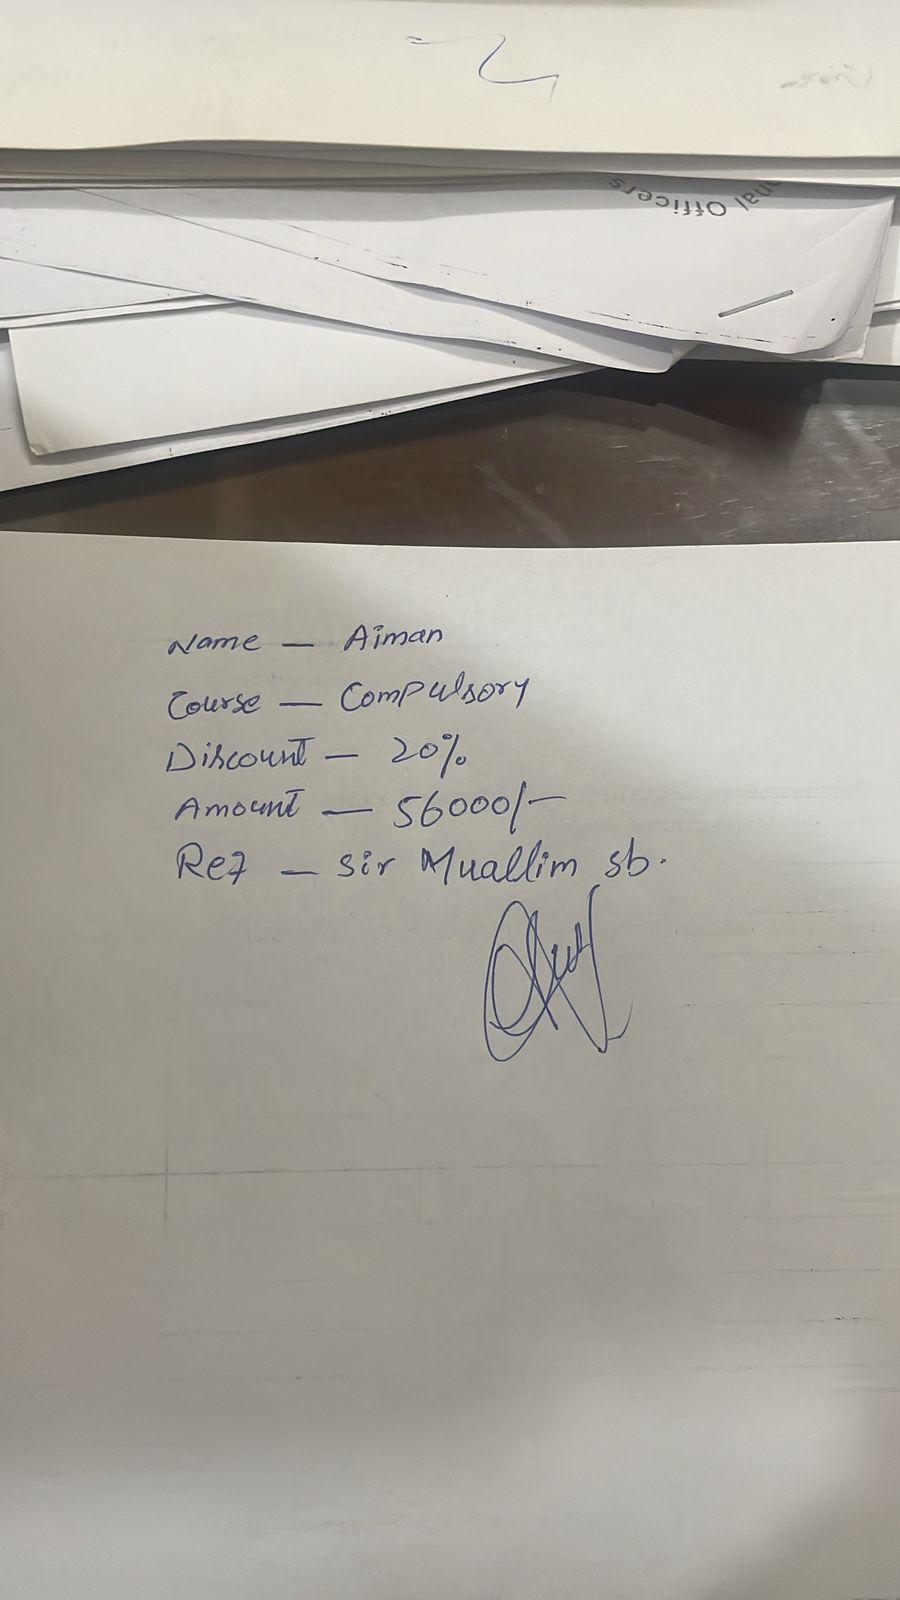 nal Officers
Name — Aiman
Course — Compulsory
Discount — 20%
Amount — 56000/-
Ref — Sir Muallim sb.